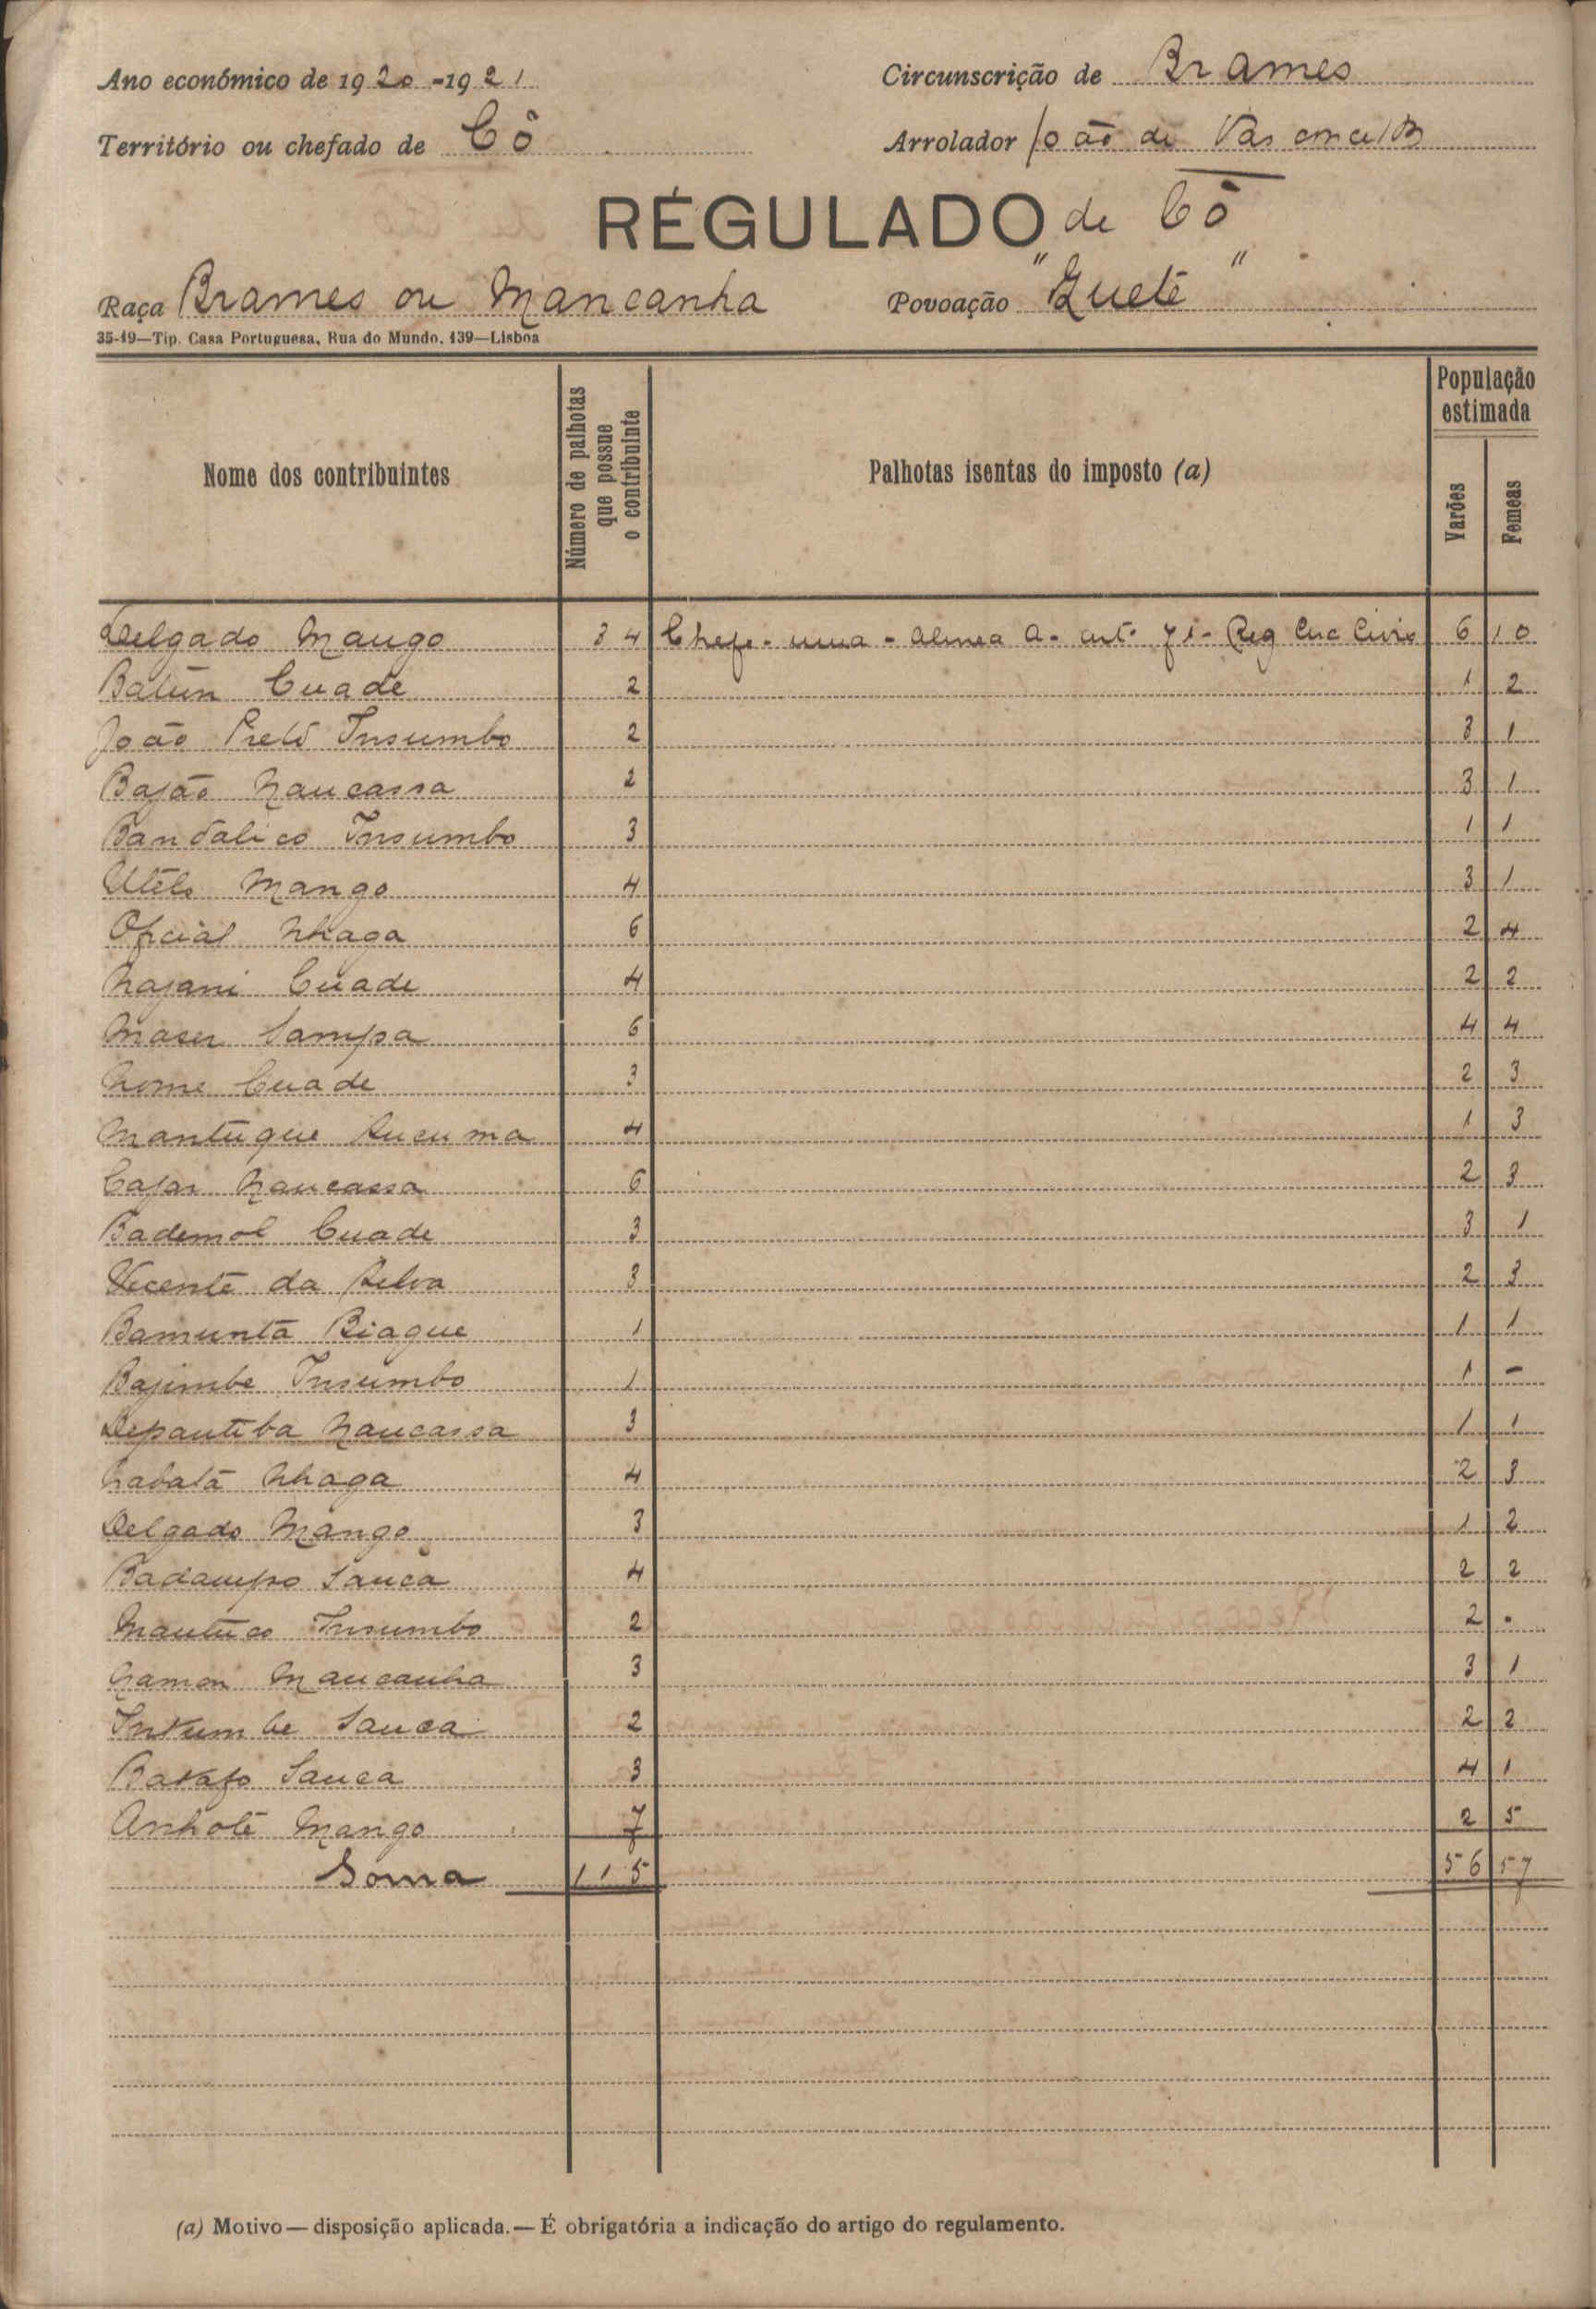 Ano económico de 1920-1921
Circunscrição de Brames
Território ou chefado de Cô
Arrolador João de Vasconcelos
RÉGULADO de Cô
Raça Brames ou Mancanha
Povoação "Quetê"
35-19—Tip. Casa Portuguesa, Rua do Mundo, 139—Lisboa
Nome dos contribuintes
Número de palhotas que possue o contribuinte
Palhotas isentas do imposto (a)
População estimada
Varões
Femeas
Delgado Mango 34 Chefe - uma - alinea a - art. 71 - Reg Circ Civis 6 10
Batún Cuade 2 1 2
João Preto Insumbo 2 3 1
Bajão Naucassa 2 3 1
Bandalico Insumbo 3 1 1
Utelo Mango 4 3 1
Oficial Nhaga 6 2 4
Najani Cuade 4 2 2
Maser Sampa 6 4 4
Nome Cuade 3 2 3
Mantuque 4 1 3
Cajar Naucassa 6 2 3
Bademol Cuade 3 3 1
Vicente da Silva 3 2 3
Bamuntã Biague 1 1 1
Bajimbe Insumbo 1 1 -
Depautiba Naucassa 3 1 1
Nhaga 4 2 3
Delgado Mango 3 1 2
Badampo Sanca 4 2 2
Mantuco Insumbo 2 2 .
Namon Mancanha 3 3 1
Sanca 2 2 2
Sanca 3 4 1
Anhotê Mango 7 2 5
Soma 115 56 57
(a) Motivo — disposição aplicada. — É obrigatória a indicação do artigo do regulamento.